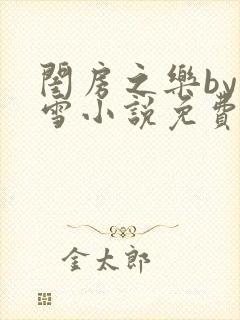 閨房之樂by
雪小說免費
金太郎